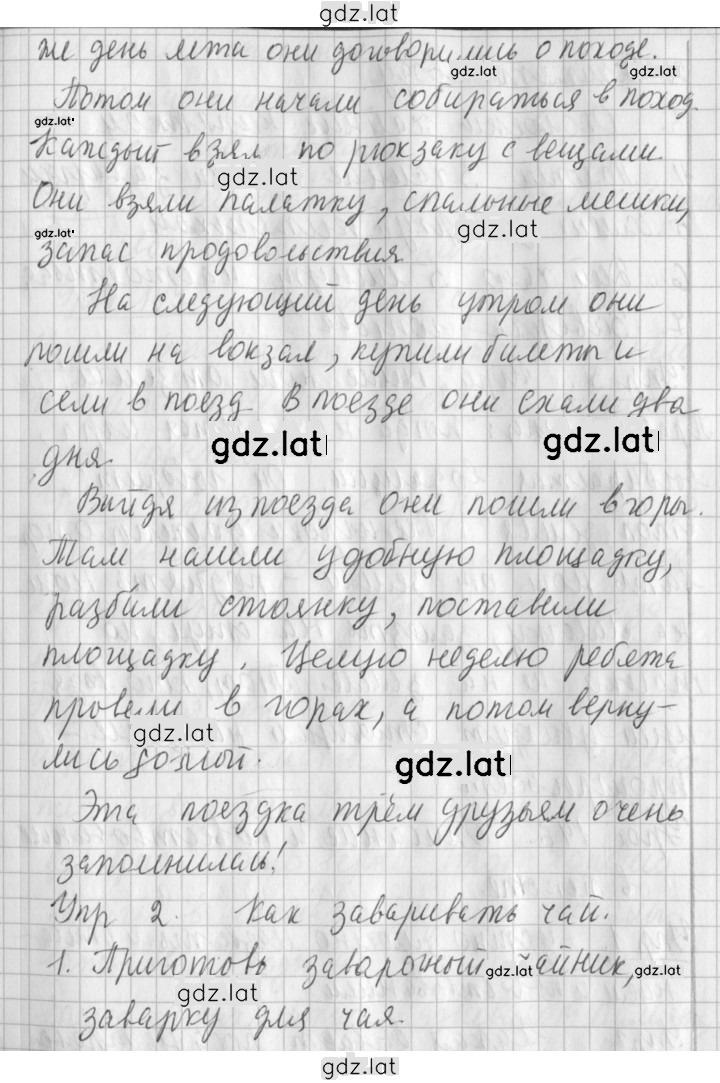 gdz.lat
же день лета они договорились о походе.
gdz.lat gdz.lat
Потом они начали собираться в поход.
gdz.lat
Каждый взял по рюкзаку с вещами.
gdz.lat
Они взяли палатку, спальные мешки,
gdz.lat gdz.lat
запас продовольствия
На следующий день утром они
пошли на вокзал, купили билеты и
сели в поезд. В поезде они ехали два
gdz.lat gdz.lat
дня.
Выйдя из поезда они пошли в горы.
Там нашли удобную площадку,
разбили стоянку, поставили
площадку. Целую неделю ребята
провели в горах, а потом верну-
gdz.lat
лись домой.
gdz.lat
Эта поездка трём друзьям очень
запомнилась!
Упр 2. Как заваривать чай.
1. Приготовь заварочный чайник,
gdz.lat gdz.lat
gdz.lat
заварку для чая.
gdz.lat